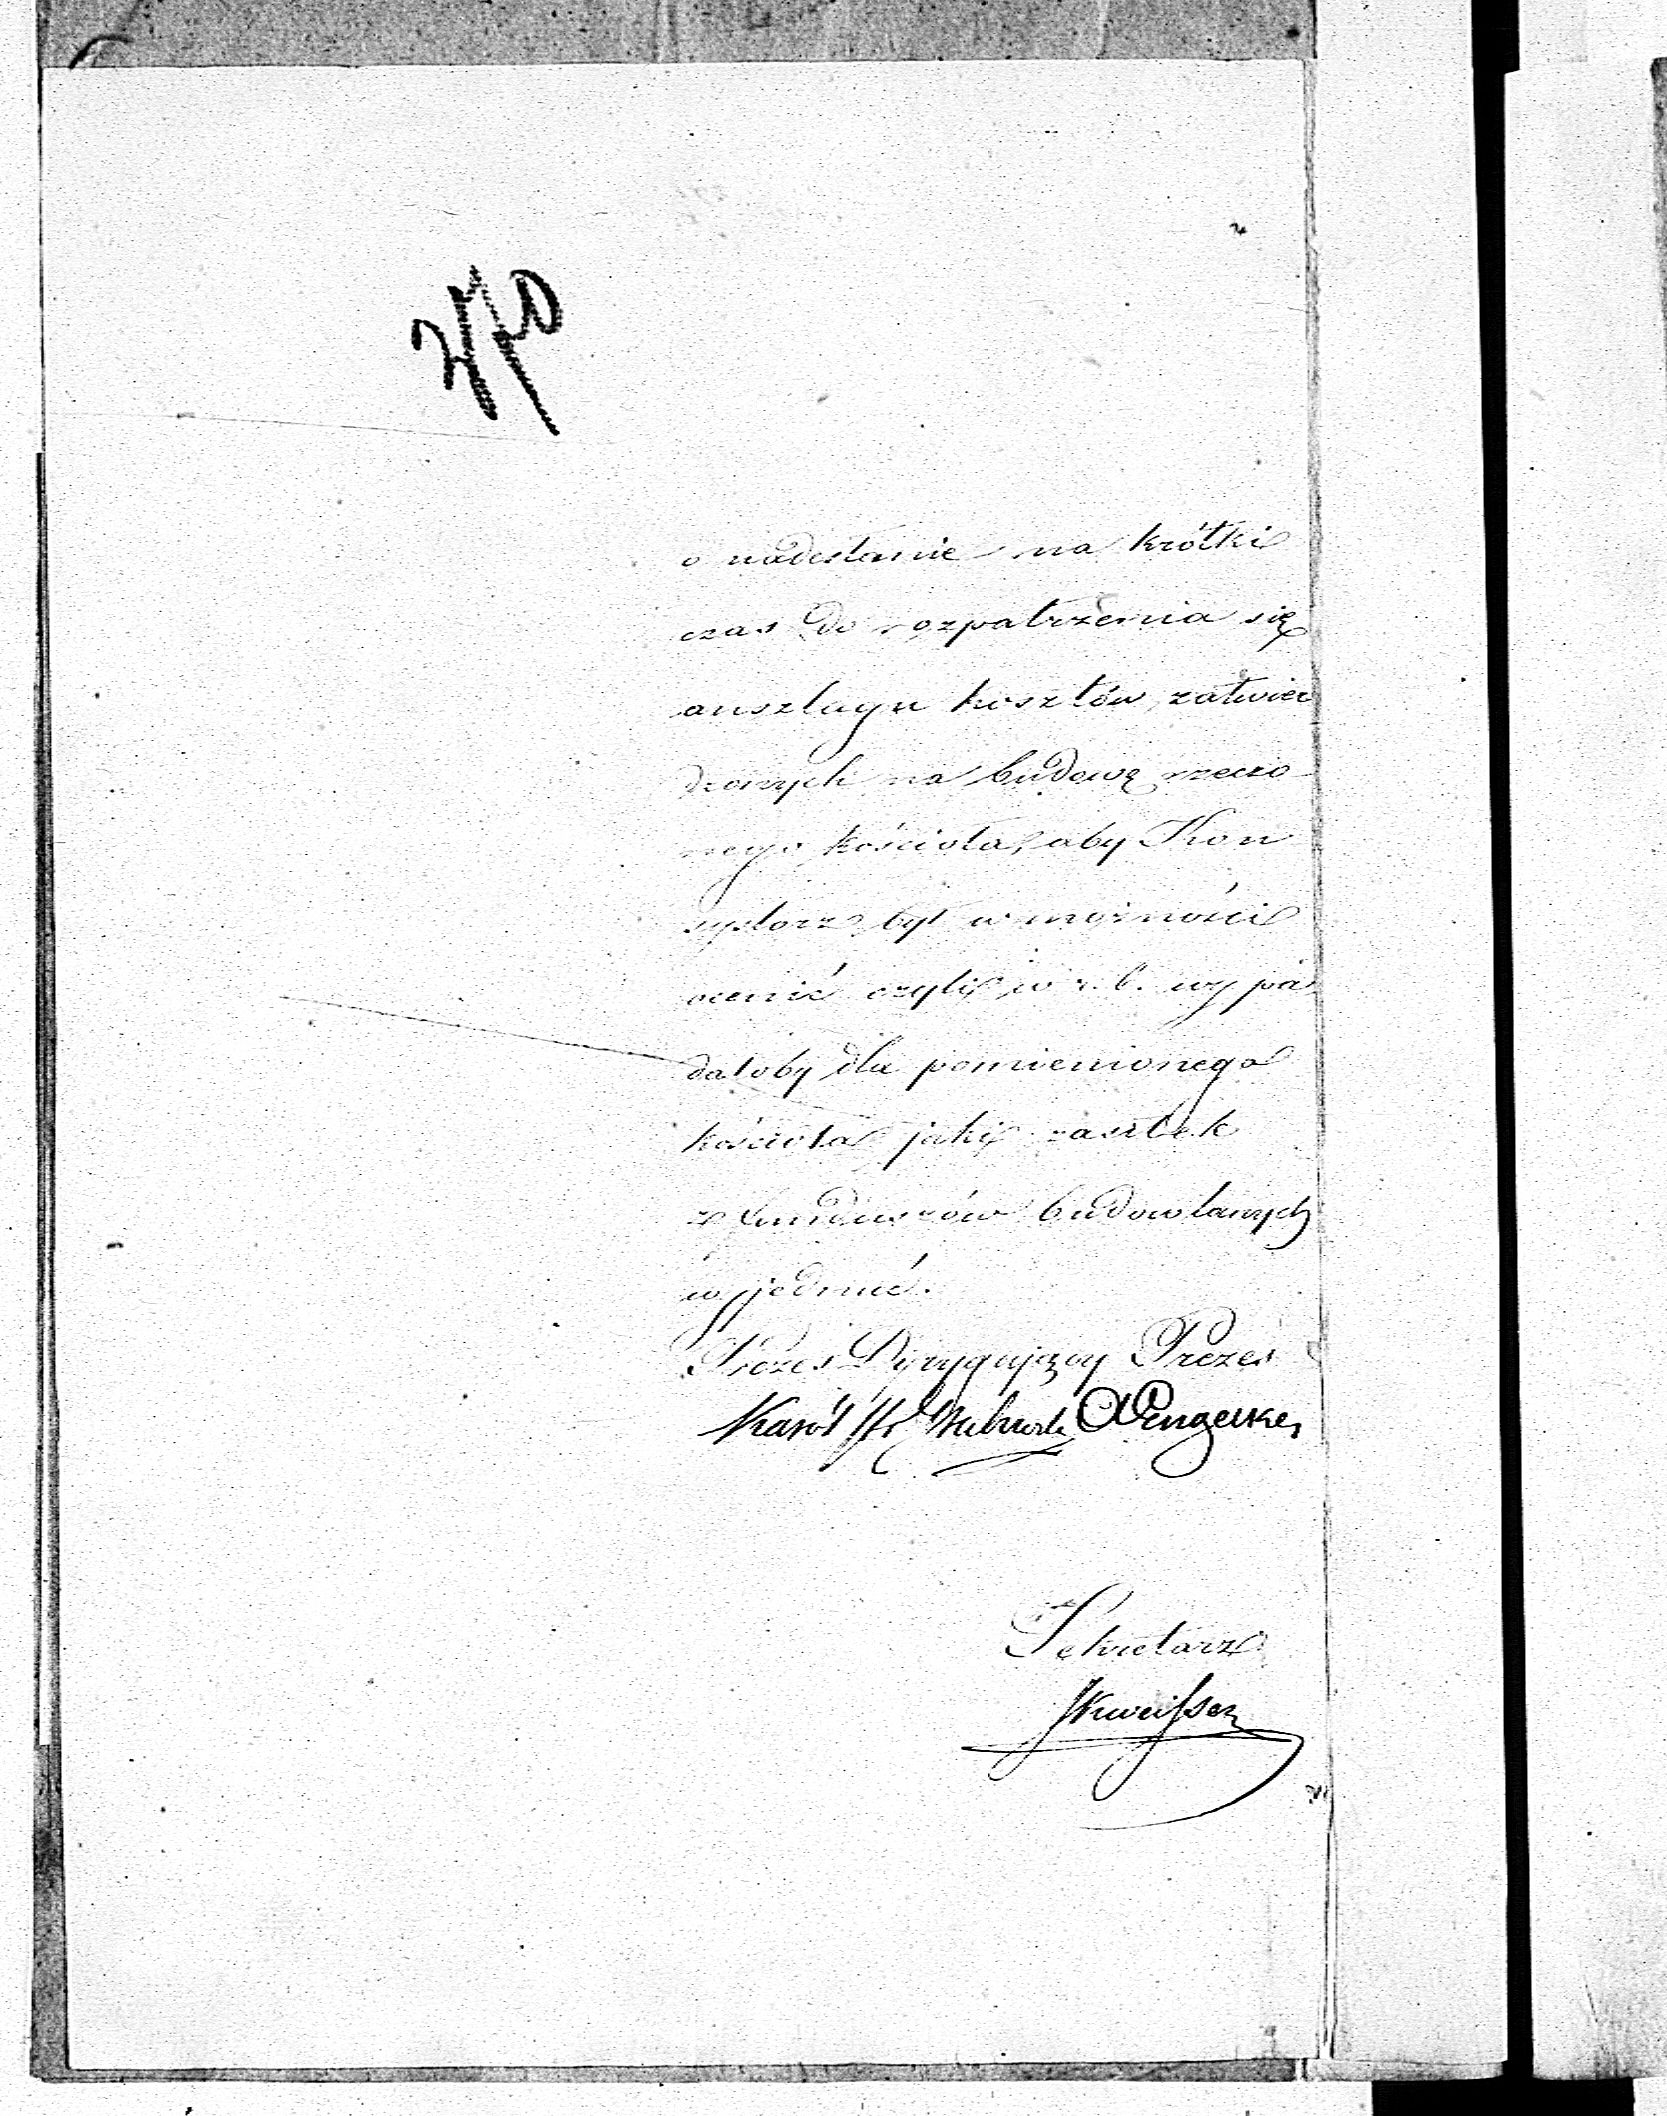 o nadesłanie na krótki
czas do rozpatrzenia się
anszlagu kosztów, zatwier
dzonych na budowę rzeczo
nego kościoła, aby Kon
systorz był w możności
ocenić czyli w r. b. wypa
dałoby dla pomienionego
kościoła jaki zasiłek
z funduszów budowlanych
wyjednać.
Prezes Dyrygujący Prezes
Karól
Sekretarz